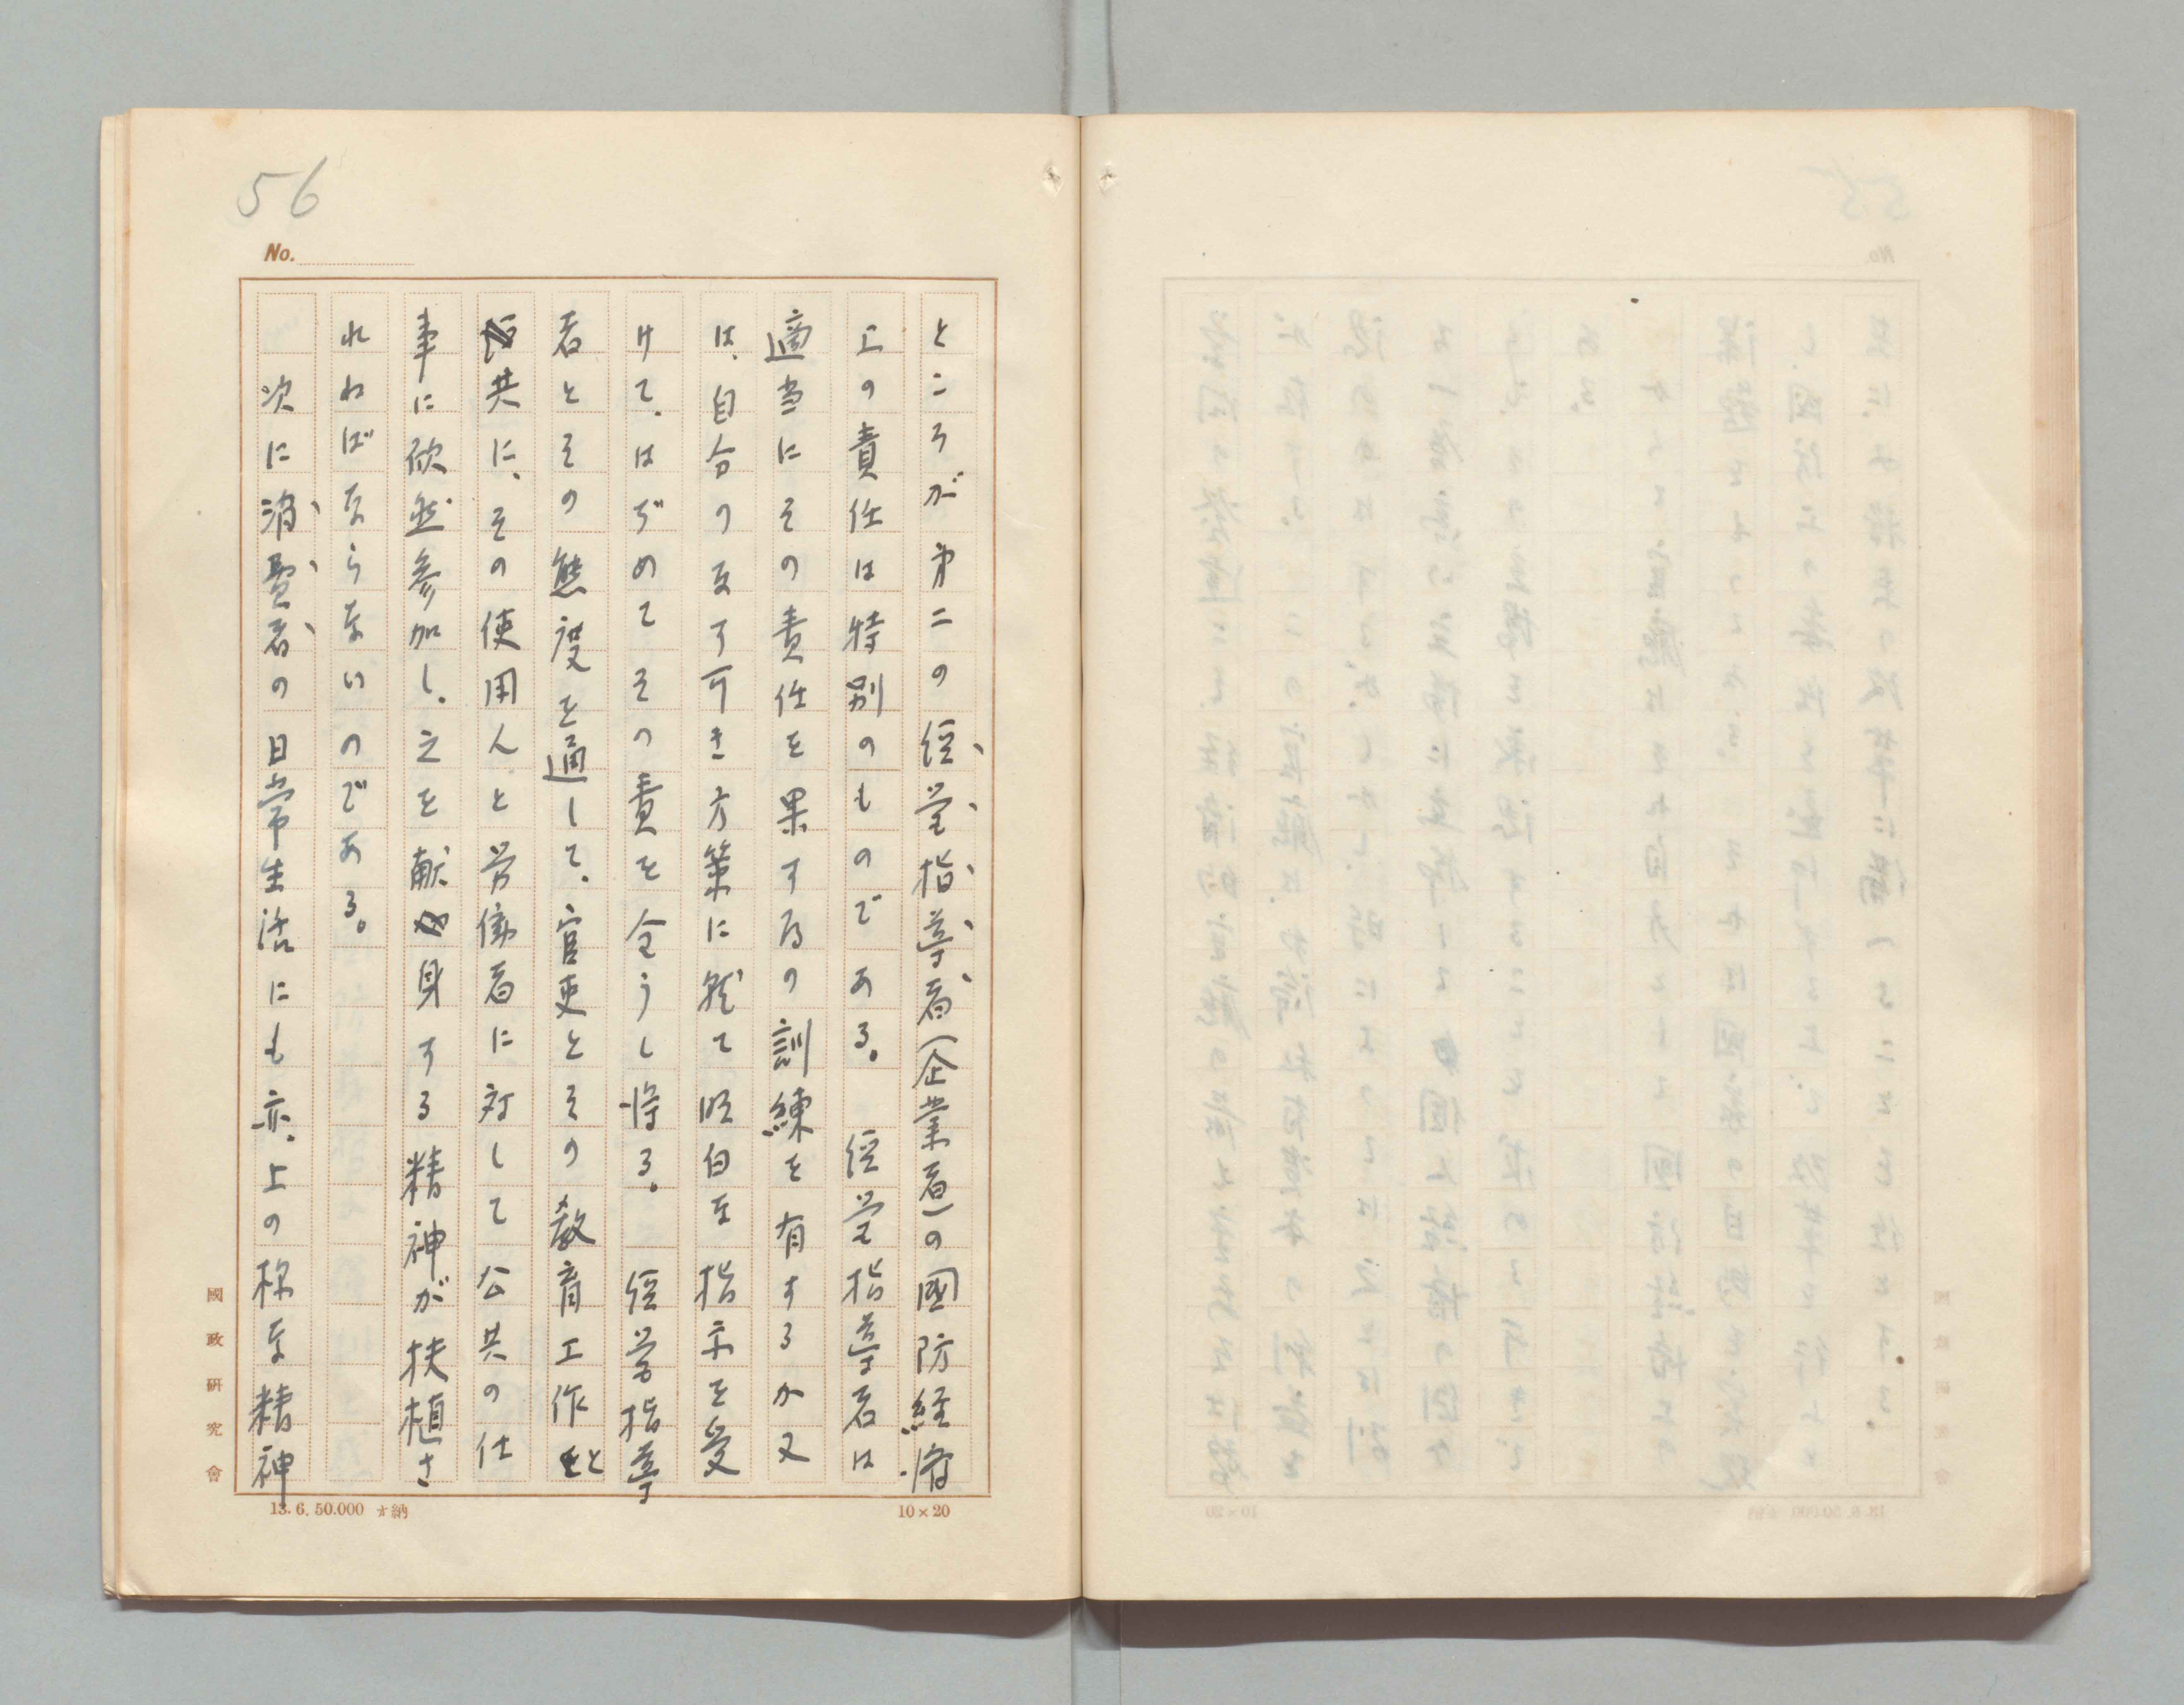 56
No.
ところが第二の経営指導者(企業者)の國防経済
上の責任は特別のものである。 経営指導者は
適当にその責任を果す為の訓練を有するか又
は、自分の致す可き方策に就て明白な指示を受
けて、はぢめてその責を全うし得る。 経営指導
者とその態度を通して、官吏とその教育工作と
共に、その使用人と労働者に対して公共の仕
事に欣然参加し、之を献身する精神が扶植さ
れねばならないのである。
次に消費者の日常生活にも亦、上の様な精神
國政研究會
13. 6. 50.000 納
10×20